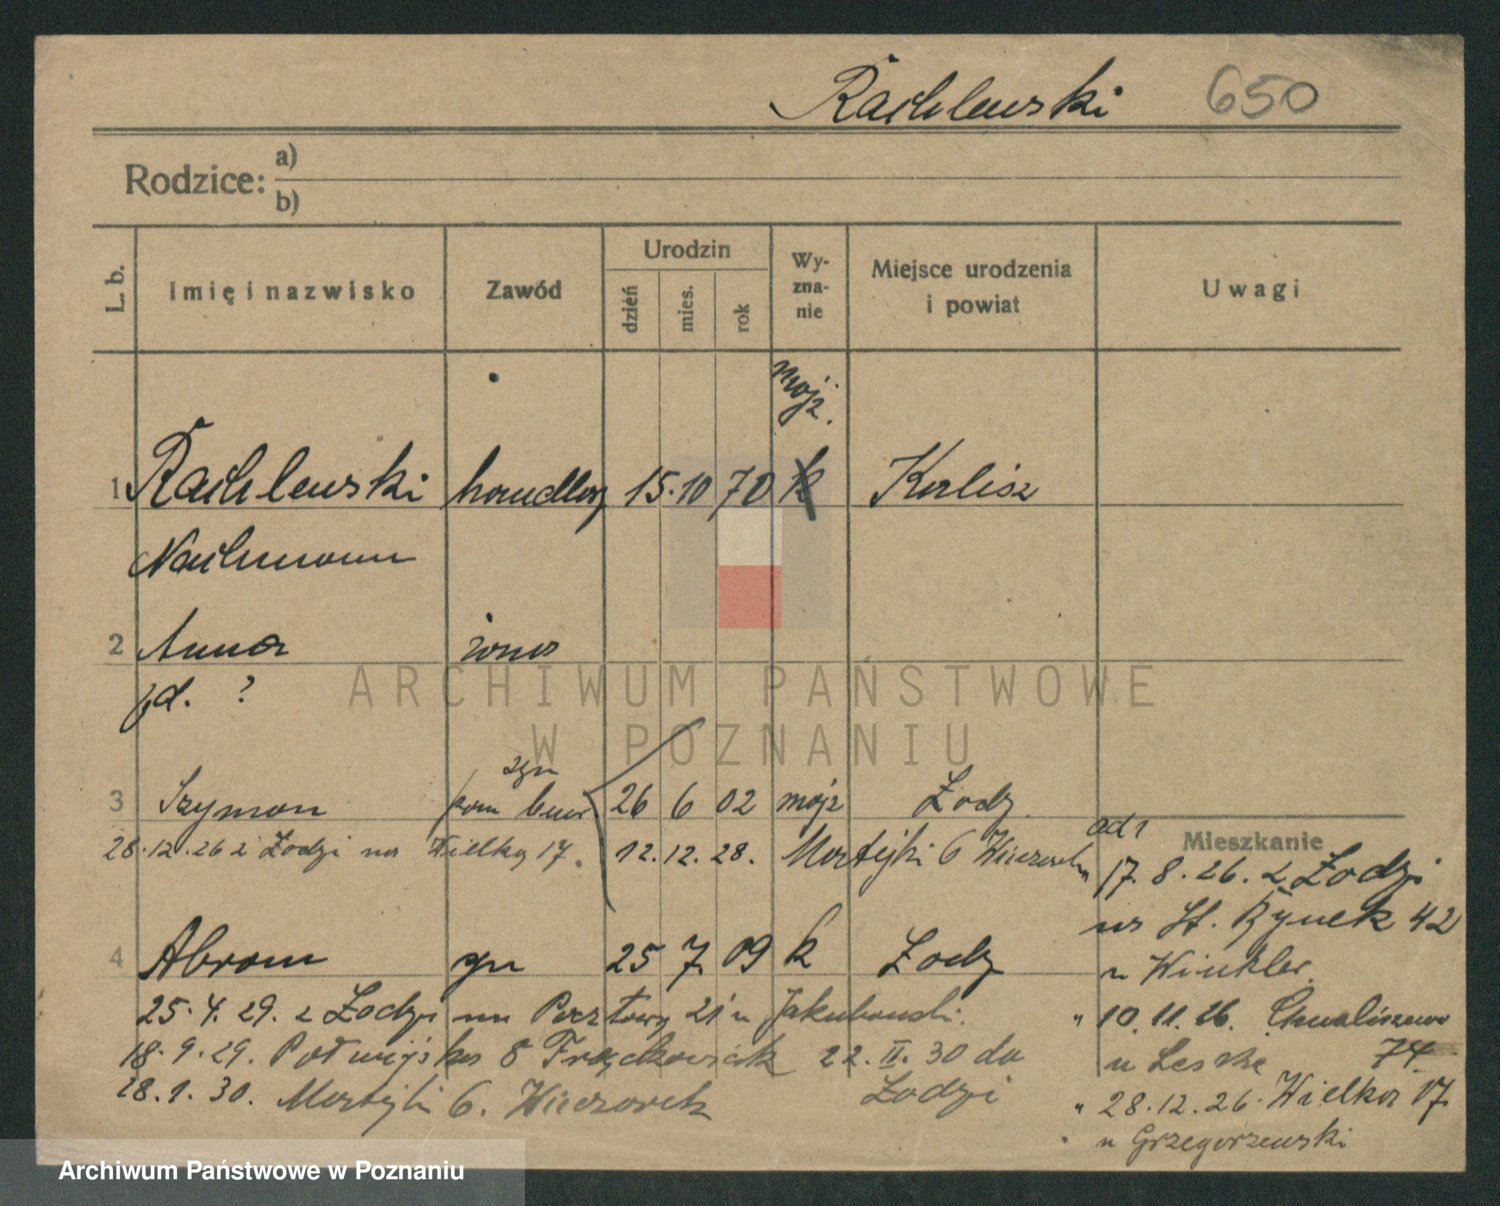 Rachlewski 650
Rodzice: a)
b)
L. b. Imię i nazwisko Zawód Urodzin dzień mies. rok Wy-zna-nie Miejsce urodzenia i powiat Uwagi
mojż.
1 Rachlewski handlarz 15. 10 70 k Kalisz
Nachmann
2 Anna żona
jd. ?
ARCHIWUM PAŃSTWOWE
W POZNANIU
syn
3 Szymon pom biur 26 6 02 mojż Łodz
28.12.26 z Łodzi na Wielką 17. 12.12.28. Masztalarska 6 Wieczorek
od 1
Mieszkanie
17. 8. 26. z Łodzi
na St. Rynek 42
u Winkler
4 Abram syn 25 7 09 k Łodz
25. 4. 29. z Łodzi na Pocztową 21 u Jakubowski.
" 10. 11. 26. Chwaliszewo
74
u Leske
18. 9. 29. 8 Frąckowiak 22. II. 30 do
Łodzi
28. 1. 30. 6. Wieczorek
" 28. 12. 26. Wielka 17.
u Grzegorzewski
Archiwum Państwowe w Poznaniu